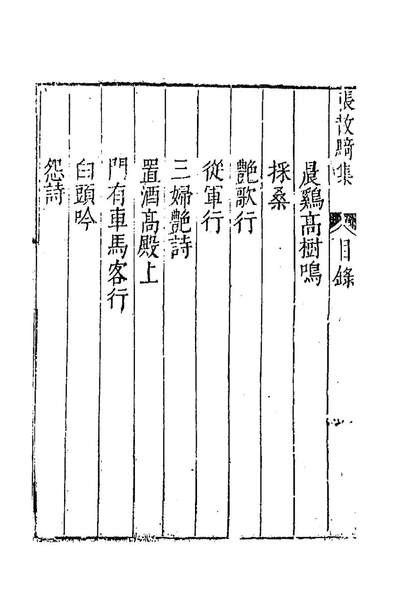 張散騎集
目錄
晨鷄高樹鳴
採桑
艶歌行
從軍行
三婦艶詩
置酒高殿上
門有車馬客行
白頭吟
怨詩